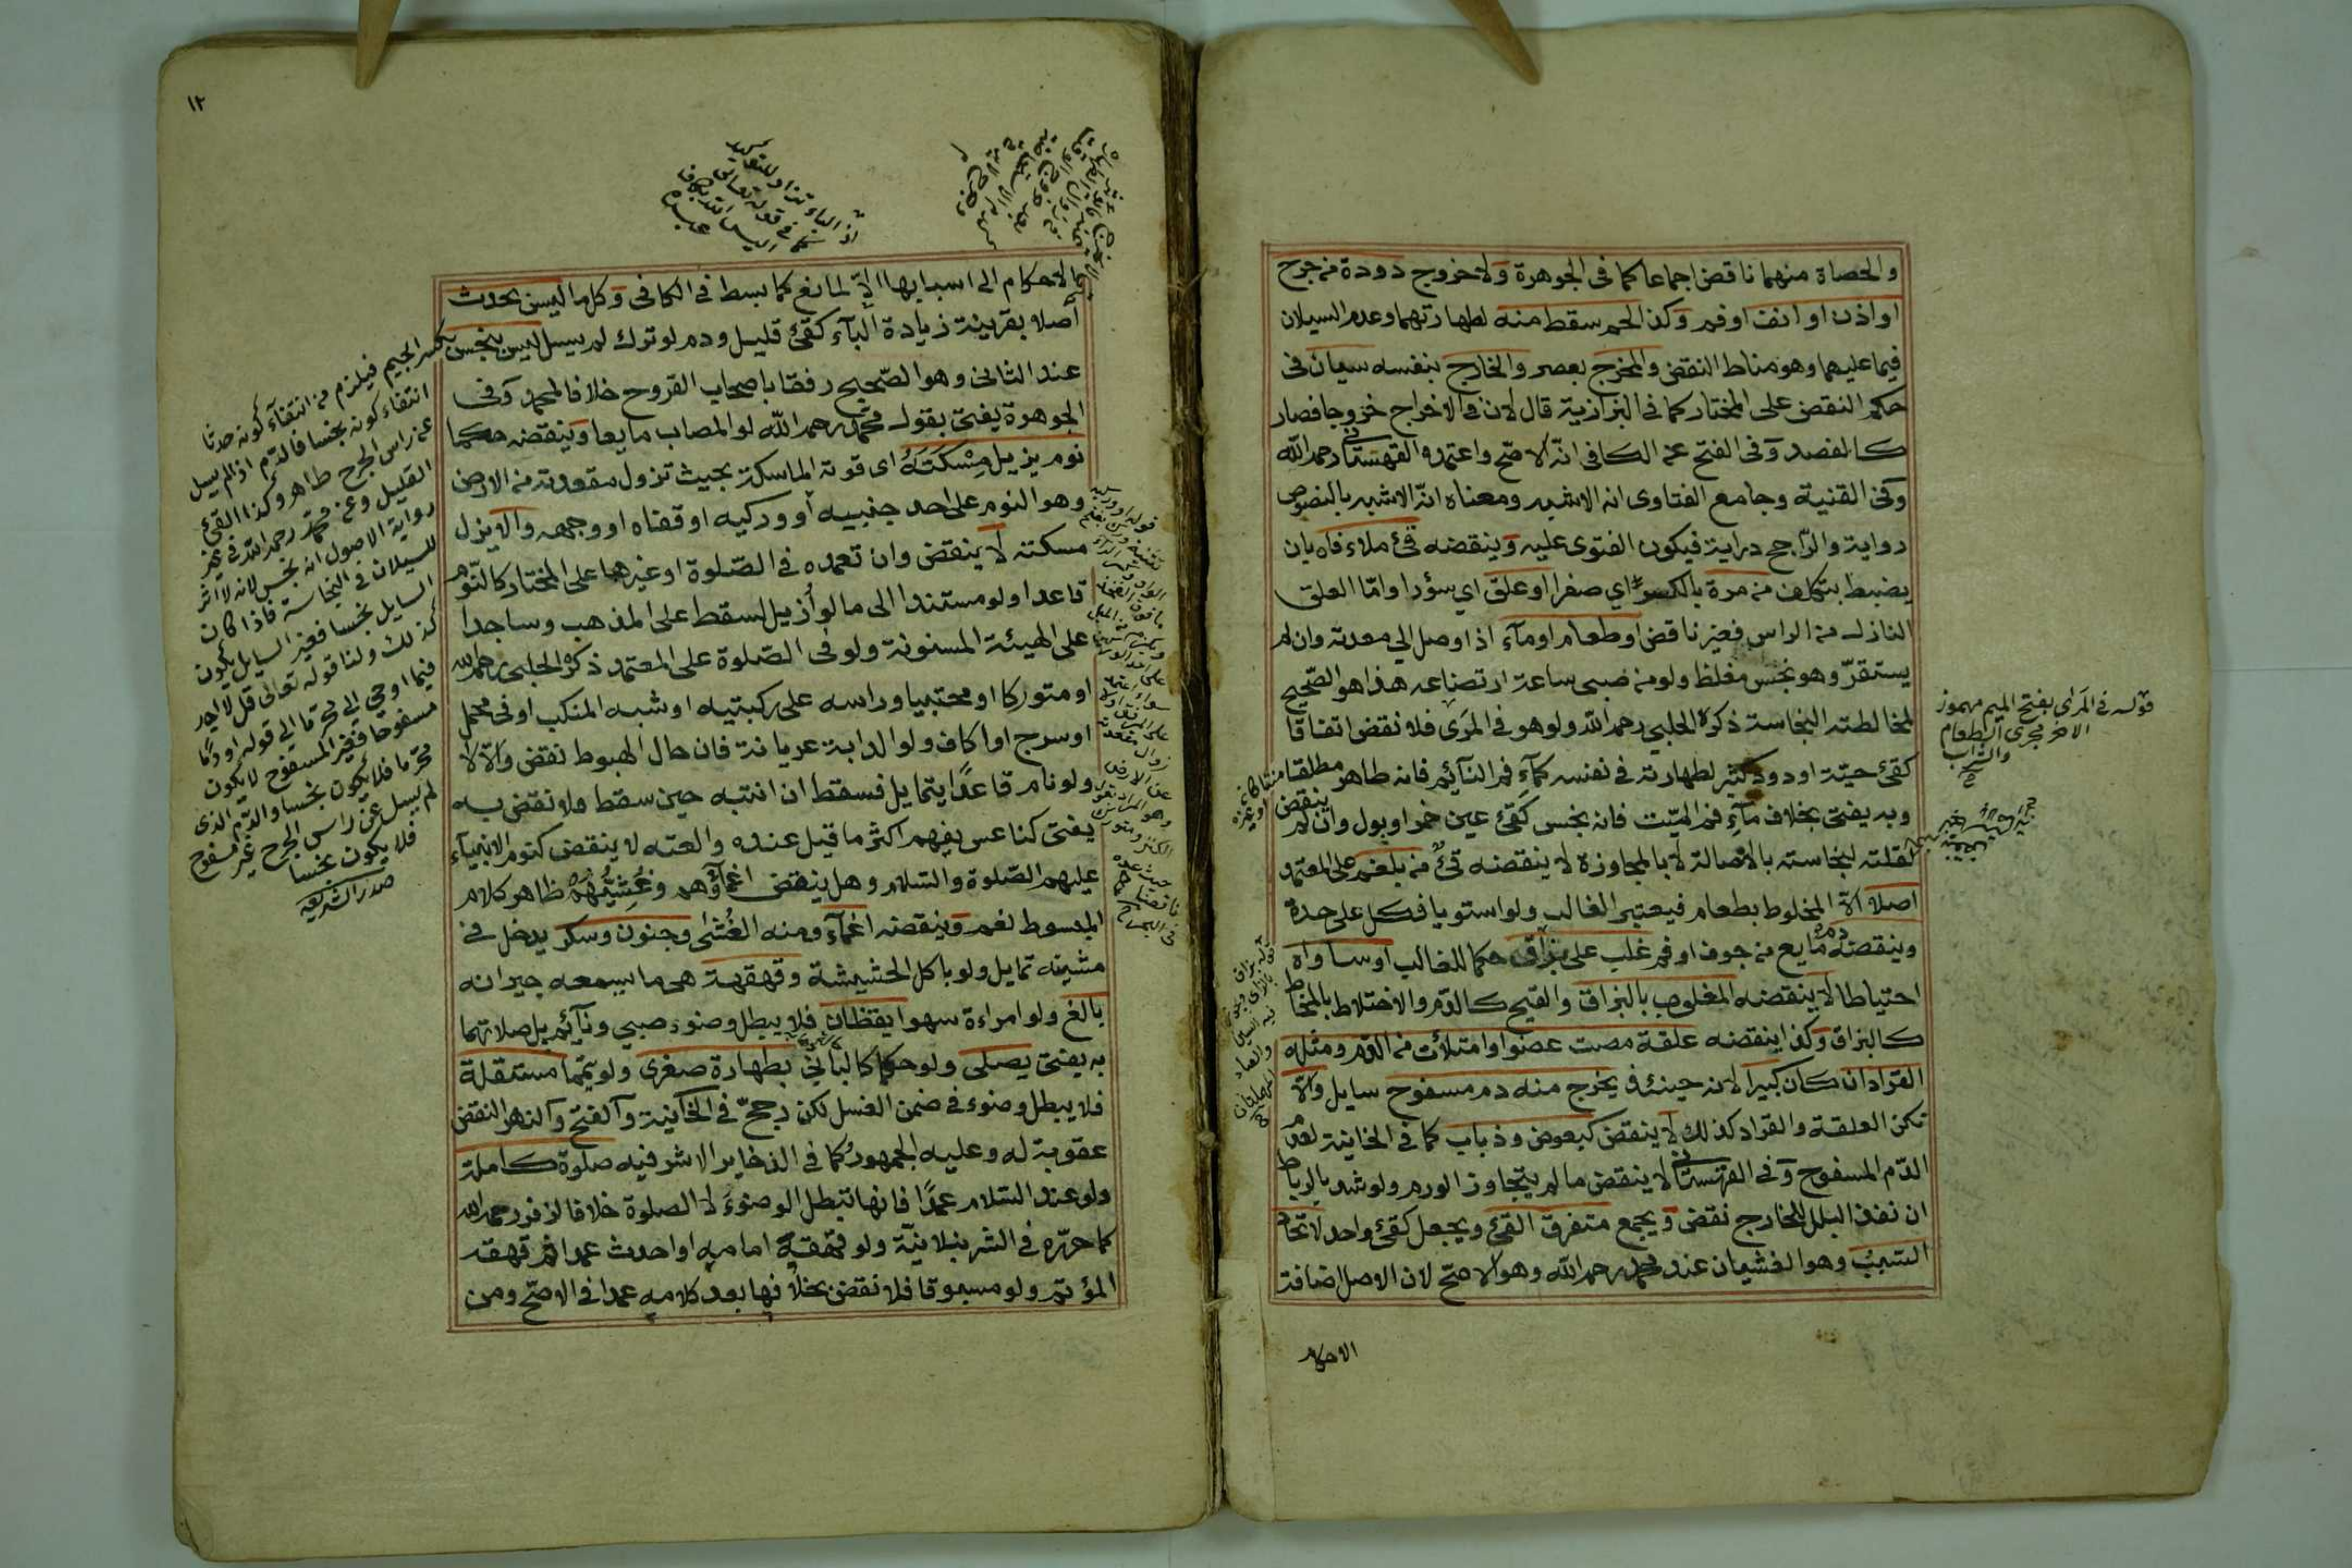 والحصاة منهما ناقض اجماعا كما فى الجوهرة ولا خروج دودة من جرح
او اذن او انف او فم وكذا لحم سقط منه لطهارتهما وعدم السيلان
فيما عليهما وهو مناط النقض والمخرج بعصر والخارج بنفسه سيان فى
حكم النقض على المختار كما فى البزازية قال لان فى الاخراج خروجا فصار
كالفصد وفى الفتح عن الكافى انه الاصح واعتمده القهستانى رحمه الله
وفى القنية وجامع الفتاوى انه الاشبه ومعناه انه الاشبه بالنصوص
رواية والراجح دراية فيكون الفتوى عليه وينقضه قئ ملاء فاه بان
يضبط بتكلف من مرة بالكسر اي صفرا او علق اي سؤدا واما العلق
النازل من الراس فغير ناقض او طعام او مآء اذا وصل الي معدته وان لم
يستقر وهو نجس مغلظ ولو من صبى ساعة ارتضاعه هذا هو الصحيح
لمخالطته النجاسة ذكره الحلبي رحمه الله ولو هو فى المرى فلا نقض اتفاقا
كقئ حية او دود كثير لطهارته فى نفسه كمآء فم النآئم فانه طاهر مطلقا
وبه يفتى بخلاف مآء فم الميت فانه نجس كقئ عين خمر او بول وان لم ينقض
لقلته لنجاسته بالاصالة لا بالمجاوزة لا ينقضه قئ من بلغم على المعتمد
اصلا الا المخلوط بطعام فيعتبر الغالب ولو استويا فكل على حدة
وينقضه دم مايع من جوف او فم غلب على بزاق حكما للغالب او ساواه
احتياطا لا ينقضه المغلوب بالبزاق والقيح كالدم والاختلاط بالمخاط
كالبزاق وكذا ينقضه علقة مصت عضوا وامتلأت من الدم ومثله
القراد ان كان كبيرا لانه حينئذ يخرج منه دم مسفوح سايل والا
تكن العلقة والقراد كذلك لا ينقض كبعوض وذباب كما فى الخانية لعدم
الدم المسفوح وفى القهستانى لا ينقض ما لم يتجاوز الورم ولو شد بالرباط
ان نفذ البلل للخارج نقض ويجمع متفرق القئ ويجعل كقئ واحد لاتحاد
السبب وهو الغشيان عند محمد رحمه الله وهو الاصح لان الاصل اضافة
الاحكام
قوله فى المرى بفتح الميم مهموز
الاخر مجرى الطعام
والشراب
١٢
الاحكام الى اسبابها الا لمانع كما بسط فى الكافى وكل ما ليس بحدث
أصلا بقرينة زيادة البآء كقئ قليل ودم لو ترك لم يسل ليس بنجس
عند الثانى وهو الصحيح رفقا باصحاب القروح خلافا لمحمد وفى
الجوهرة يفتى بقول محمد رحمه الله لو المصاب مايعا وينقضه حكما
نوم يزيل مسكته اى قوته الماسكة بحيث تزول مقعدته من الارض
وهو النوم على احد جنبيه أو وركيه او قفاه او وجهه والا يزل
مسكته لا ينقض وان تعمده فى الصلوة او غيرها على المختار كالنوم
قاعدا ولو مستندا الى ما لو أزيل لسقط على المذهب وساجدا
على الهيئة المسنونة ولو فى الصلوة على المعتمد ذكره الحلبى رحمه الله
او متوركا او محتبيا وراسه على ركبتيه او شبه المنكب او فى محمل
او سرج او اكاف ولو الدابة عريانة فان حال الهبوط نقض والا لا
ولو نام قاعدا يتمايل فسقط ان انتبه حين سقط فلا نقض به
يفتى كناعس يفهم اكثر ما قيل عنده والعته لا ينقض كنوم الانبيآء
عليهم الصلوة والسلام وهل ينقض اغمآؤهم وغشيهم ظاهر كلام
المبسوط نعم وينقضه اغمآء ومنه الغشى وجنون وسكر يدخل فى
مشيته تمايل ولو باكل الحشيشة وقهقهة هى ما يسمعه جيرانه
بالغ ولو امراءة سهوا يقظان فلا يبطل وضوء صبي ونآئم بل صلاتهما
به يفتى يصلى ولو حكما كالباني بطهارة صغرى ولو تيمما مستقلة
فلا يبطل وضوء فى ضمن الغسل لكن رجح فى الخانية والفتح والنهر النقض
عقوبة له وعليه الجمهور كما فى الذخاير الاشرفيه صلوة كاملة
ولو عند السلام عمدا فانها تبطل الوضوء لا الصلوة خلافا لزفر رحمه الله
كما حرره فى الشرنبلانية ولو قهقه امامه او احدث عمدا ثم قهقه
المؤتم ولو مسبوقا فلا نقض بخلافها بعد كلامه عمدا فى الاصح ومن
بكسر الجيم فيلزم من انتفآء كونه حدثا
انتفاء كونه نجسا فالدم اذا لم يسل
عن راس الجرح طاهر وكذا القئ
القليل وعن محمد رحمه الله فى غير
رواية الاصول انه نجس لانه لا اثر
للسيلان فى النجاسة فاذا كان
السايل نجسا فغير السايل يكون
كذلك ولنا قوله تعالى قل لا اجد
فيما اوحي الى محرما الى قوله او دما
مسفوحا فغير المسفوح لا يكون
محرما فلا يكون نجسا والدم الذى
لم يسل عن راس الجرح غير مسفوح
فلا يكون نجسا
صدر الشريعه